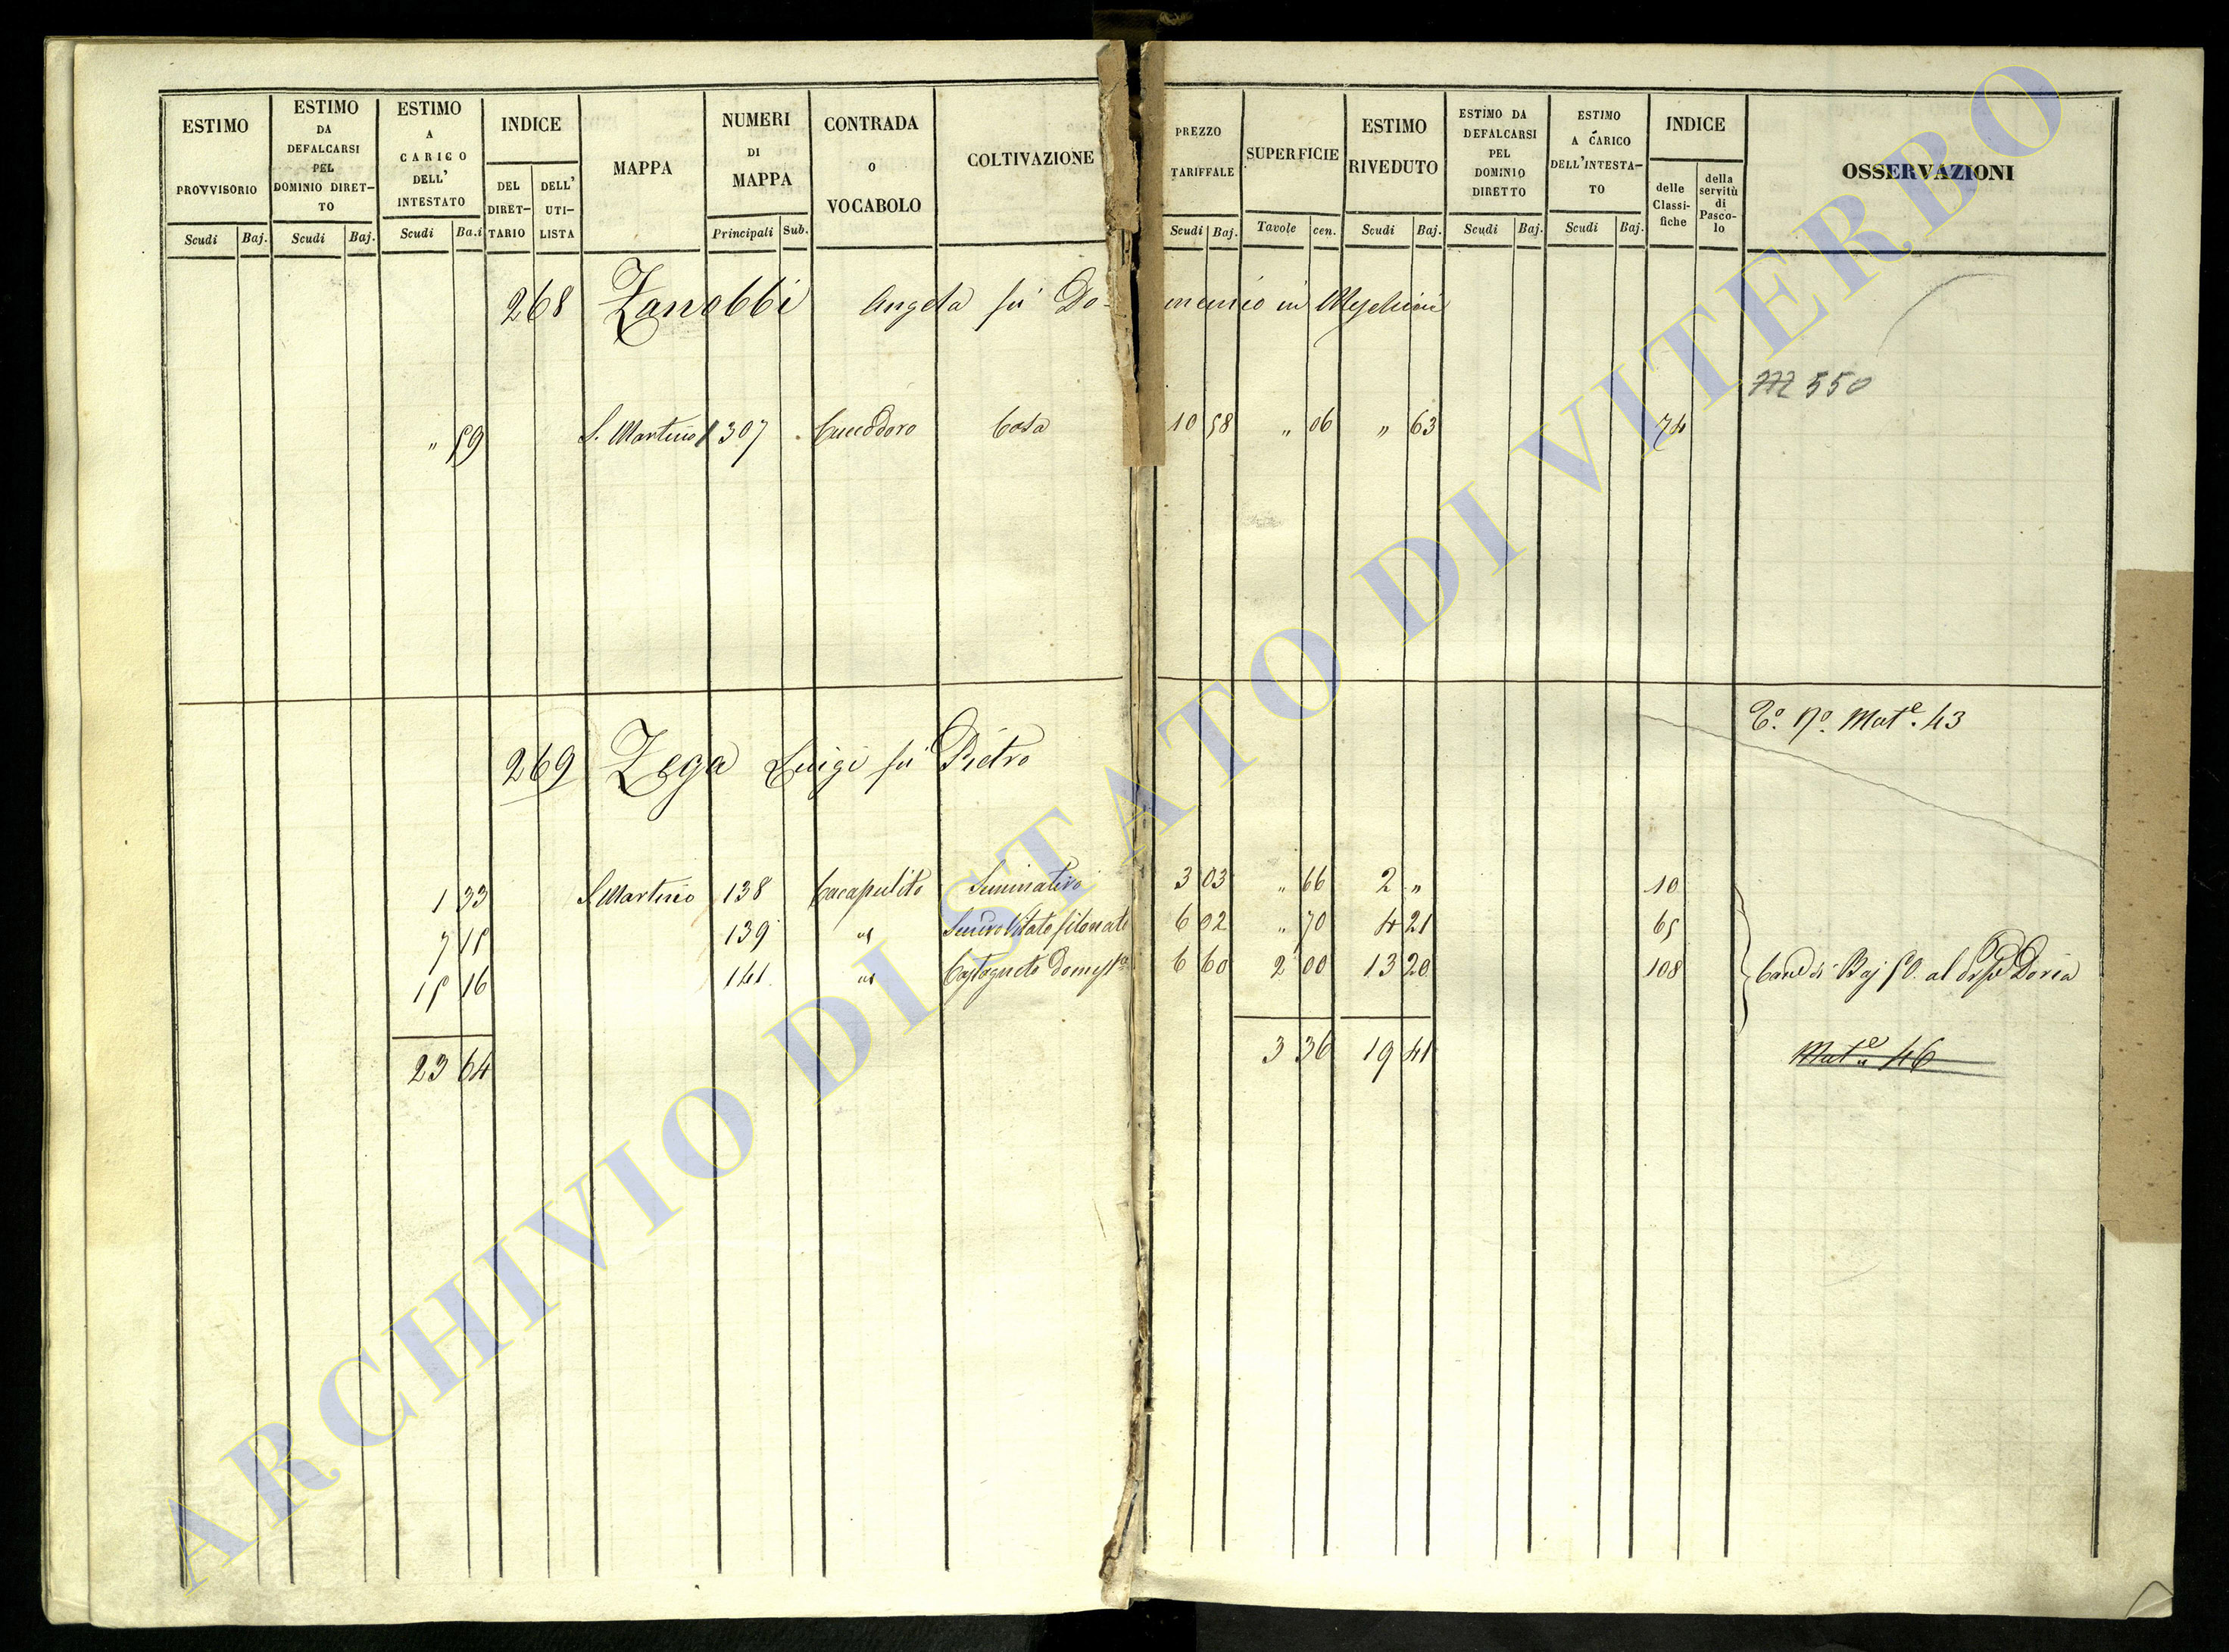 ESTIMO PROVVISORIO
Scudi Baj.
ESTIMO DA DEFALCARSI PEL DOMINIO DIRETTO
Scudi Baj.
ESTIMO A CARICO DELL' INTESTATO
Scudi Ba.i
INDICE
DEL DIRETTARIO
DELL' UTILISTA
MAPPA
NUMERI DI MAPPA
Principali Sub.
CONTRADA o VOCABOLO
COLTIVAZIONE
PREZZO TARIFFALE
Scudi Baj.
SUPERFICIE
Tavole cen.
ESTIMO RIVEDUTO
Scudi Baj.
ESTIMO DA DEFALCARSI PEL DOMINIO DIRETTO
Scudi Baj.
ESTIMO A CARICO DELL'INTESTATO
Scudi Baj.
INDICE
delle Classifiche
della servitù di Pascolo
OSSERVAZIONI
268 Zanobbi Angela fu Do-
in
M 550
" 59 S. Martino 1307 Casa 10 58 " 06 " 63 74
269 Zega Luigi fu Pietro
Mat.e 43
1 33 S. Martino 138 Cacapulito Seminativo 3 03 " 66 2 " 10
7 15 139 6 02 " 70 4 21 65
15 16 141 Castagneto Domest.o 6 60 2 00 13 20 108
Baj 50. al Doria
23 64 3 36 19 41
Mat.e 46
ARCHIVIO DI STATO DI VITERBO